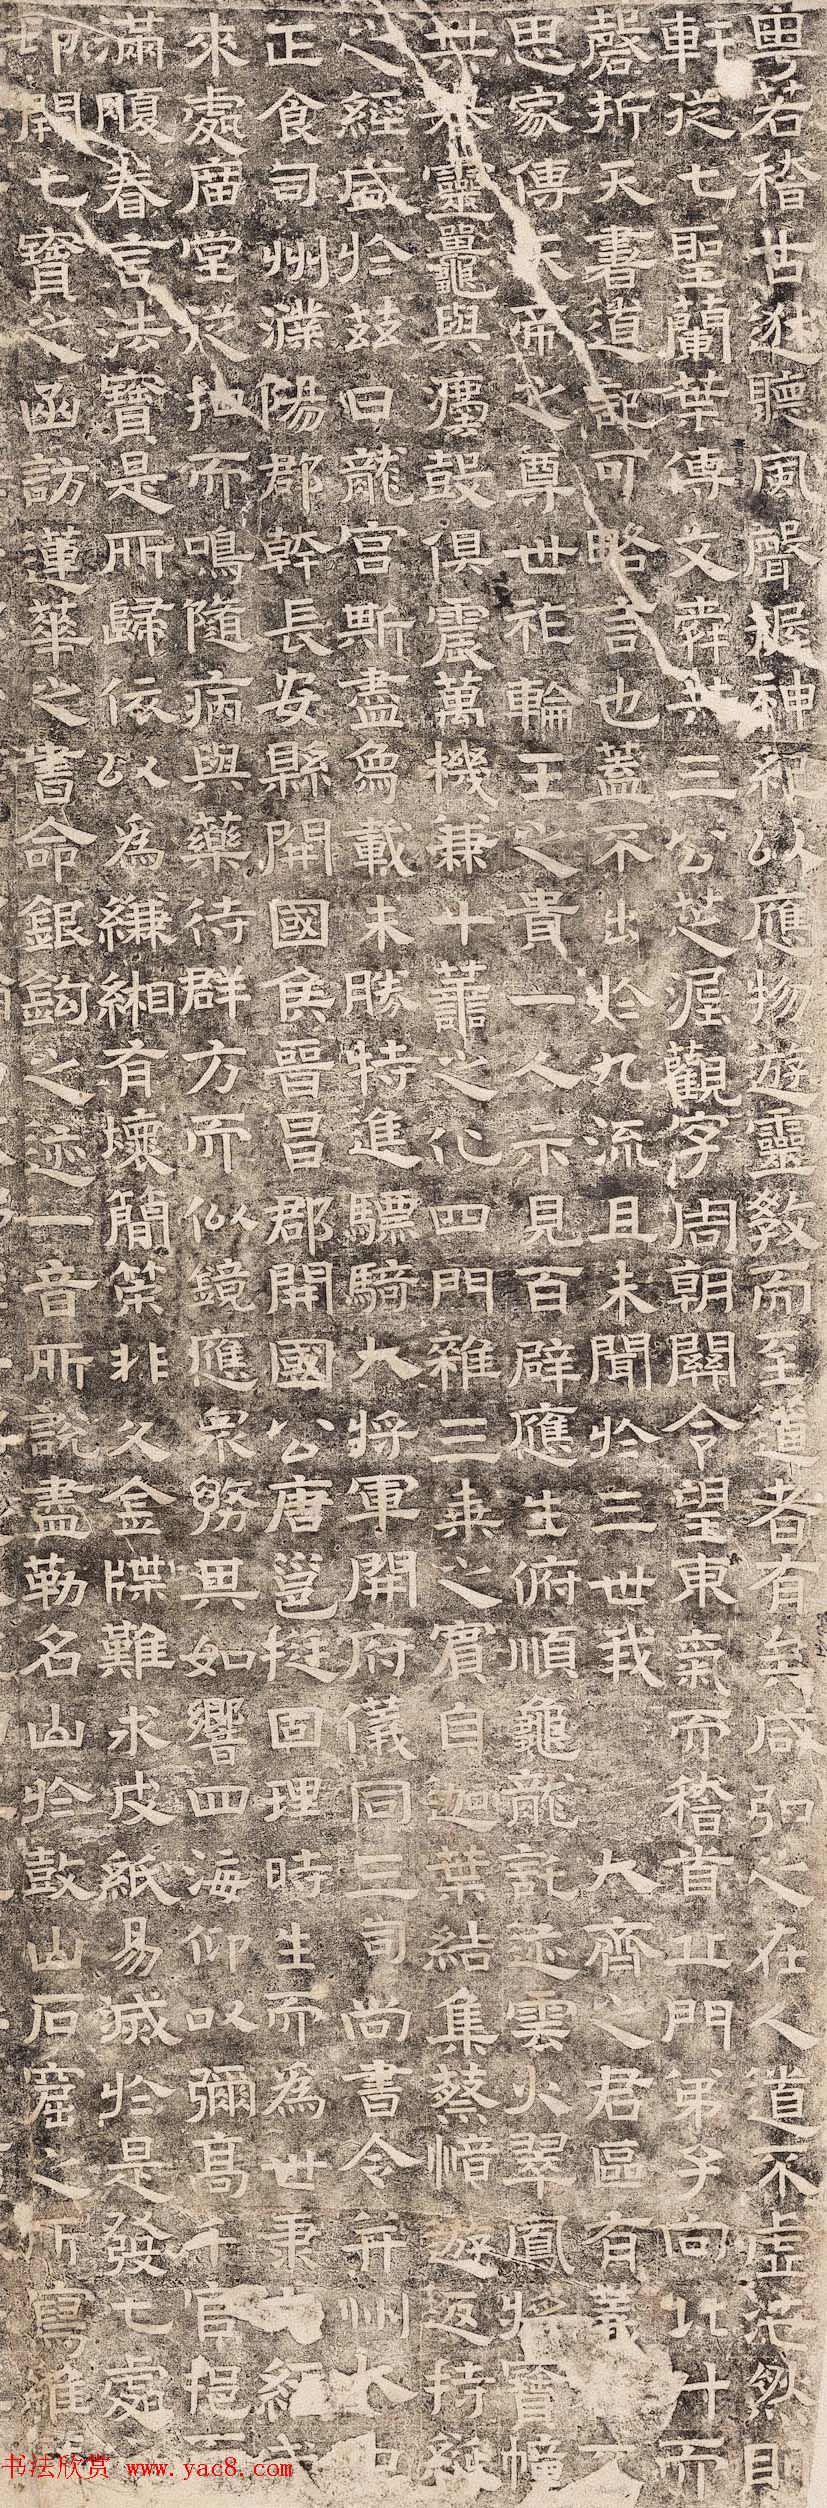 粵若稽古逖聽風聲握神紀以應物遊靈教而至道者有矣咸弘之在人道不虛茫然則
軒從七聖蘭葉傳文舜共三公芝泥觀字周朝關令望東氣而稽首丘門弟子向北斗而
磬折天書道記可略言也蓋不出於九流且未聞於三世我大齊之君區有
思家傳天帝之尊世祚輪王之貴一人示見百辟應生俯順龜龍託迹雲火翠鳳將寶幢
共來靈鼉與鼓俱震萬機兼十善之化四門雜三乘之賓自迦葉結集蔡愔遊返持綖
之經盛於茲日龍宮斯盡為載未勝特進驃騎大將軍開府儀同三司尚書令并州大中
正食司州濮陽郡幹長安縣開國侯晉昌郡開國公唐邕挺固理時生而為世秉
來處廣堂從扣而鳴隨病與藥待群方而似鏡應眾務其如響四海仰以彌高千官挹而
滿腹眷言法寶是所歸依以為縑緗有壞簡策非久金牒難求皮紙易滅於是發七處之
印開七寶之函訪蓮華之書命銀鈎之迹一音所說盡勒名山於鼓山石窟之所寫維
书法欣赏 www.yac8.com